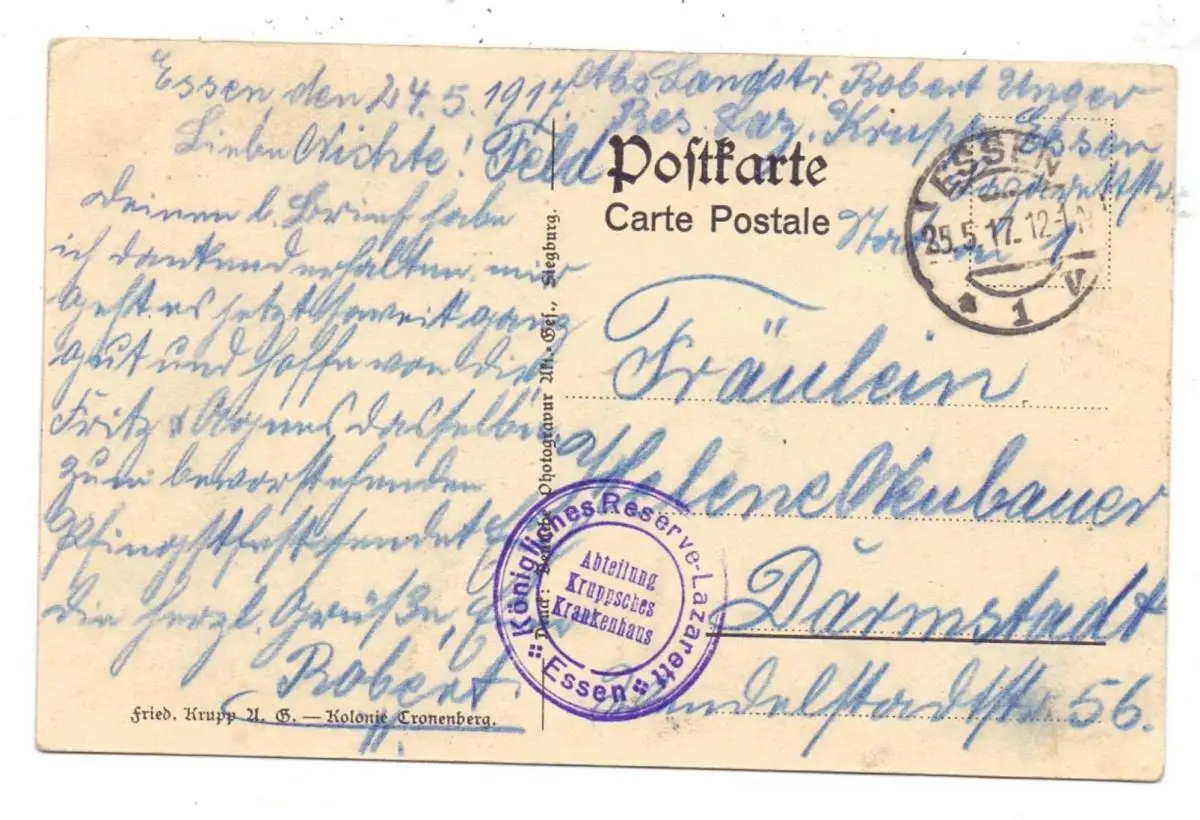 Essen, den 24.5.1917
Liebe Nichte!
Deinen l. Brief habe
ich dankend erhalten, mir
geht es jetzt soweit ganz
gut und hoffe von dir
Fritz & Agnes dasselbe
Zum bevorstehenden
Pfingstfest sendet
die herzl. Grüße,
Robert
Fried. Krupp A. G. — Kolonie Cronenberg.
Druck: Deutsche Photogravur Akt.-Ges., Siegburg.
Abs. Landstr. Robert Unger
Res. Laz. Krupp Essen
Feld Postkarte
Carte Postale
Lazarettstr.
1
ESSEN
25.5.17. 12-1 N
* 1 V.
Fräulein
Helene Neubauer
Darmstadt
56.
Königliches Reserve-Lazarett
Essen
Abteilung
Kruppsches
Krankenhaus